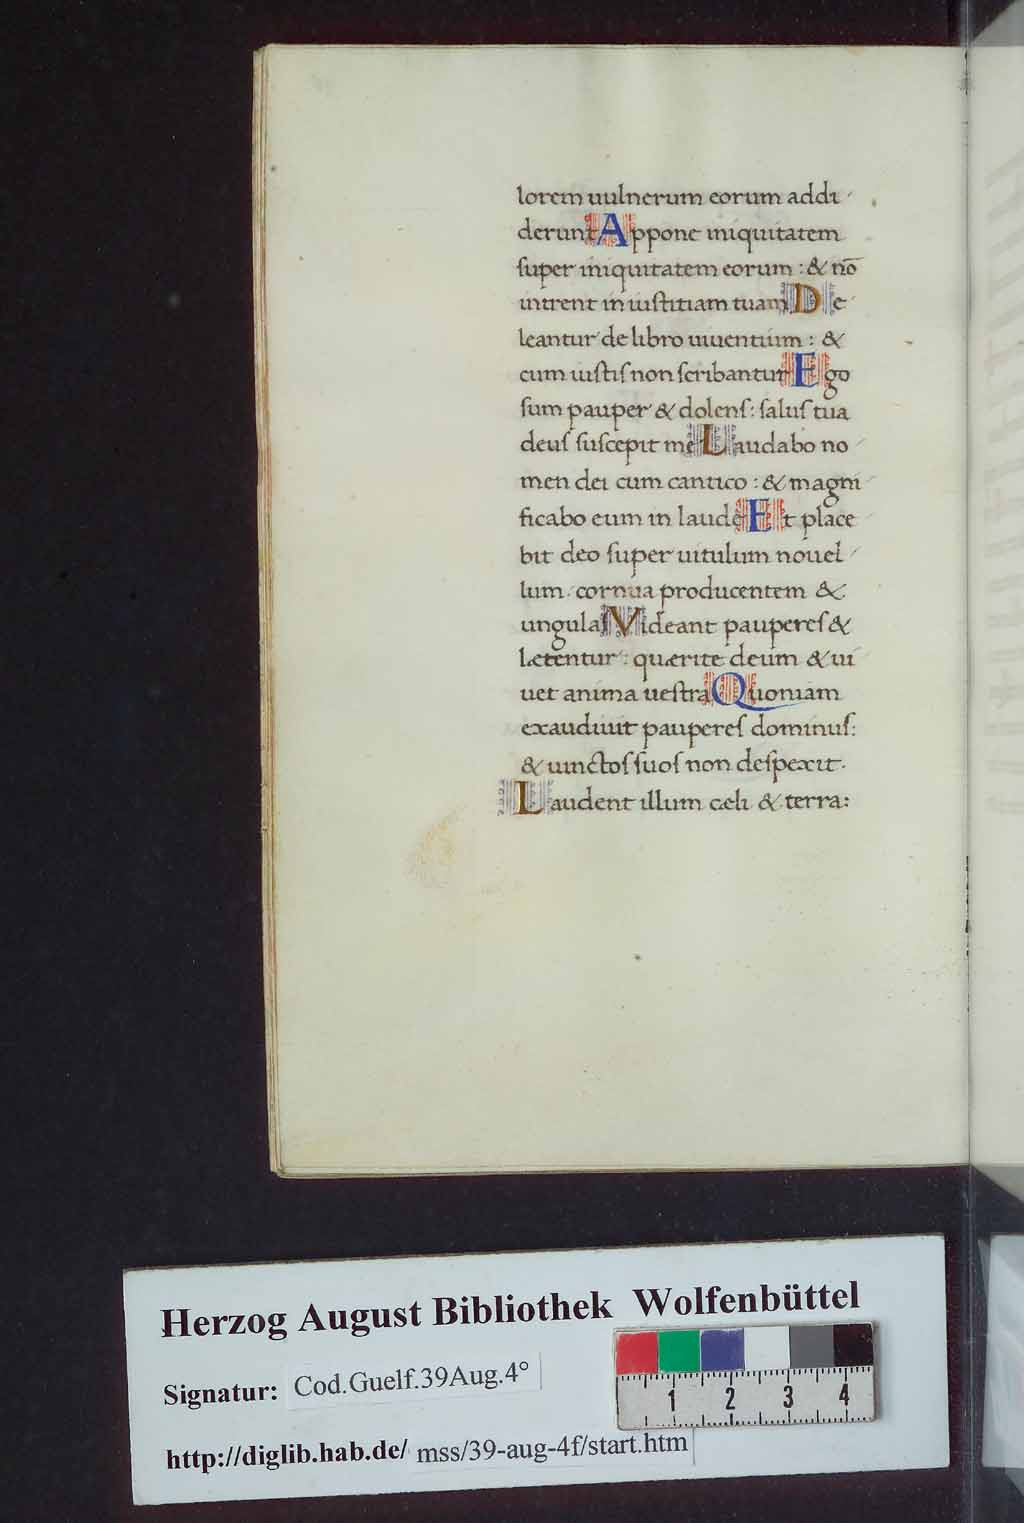 lorem uulnerum eorum addi
derunt Appone iniquitatem
super iniquitatem eorum : & nō
intrent in iustitiam tuam De
leantur de libro uiuentium : &
cum iustis non scribantur Ego
sum pauper & dolens : salus tua
deus suscepit me Laudabo no
men dei cum cantico : & magni
ficabo eum in laude Et place
bit deo super uitulum nouel
lum : cornua producentem &
ungulas Videant pauperes &
lætentur : quærite deum & ui
uet anima uestra Quoniam
exaudiuit pauperes dominus :
& uinctos suos non despexit .
Laudent illum cæli & terra :
Herzog August Bibliothek Wolfenbüttel
Signatur: Cod.Guelf.39Aug.4°
1 2 3 4
http://diglib.hab.de/ mss/39-aug-4f/start.htm